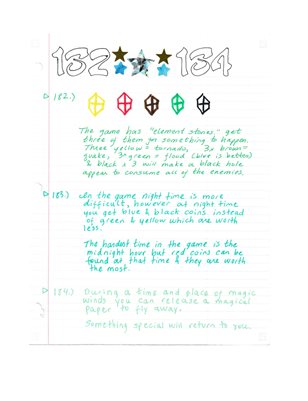 182 184
182.)
The game has "element stones," get
three of them for something to happen.
Three yellow = tornado, 3x brown =
quake, 3x green = flood (blue is better)
& black x 3 will make a black hole
appear to consume all of the enemies.
183.) In the game night time is more
difficult, however at night time
you get blue & black coins instead
of green & yellow which are worth
less.
The hardest time in the game is the
midnight hour but red coins can be
found at that time & they are worth
the most.
184.) During a time and place of magic
winds you can release a magical
paper to fly away.
Something special will return to you.